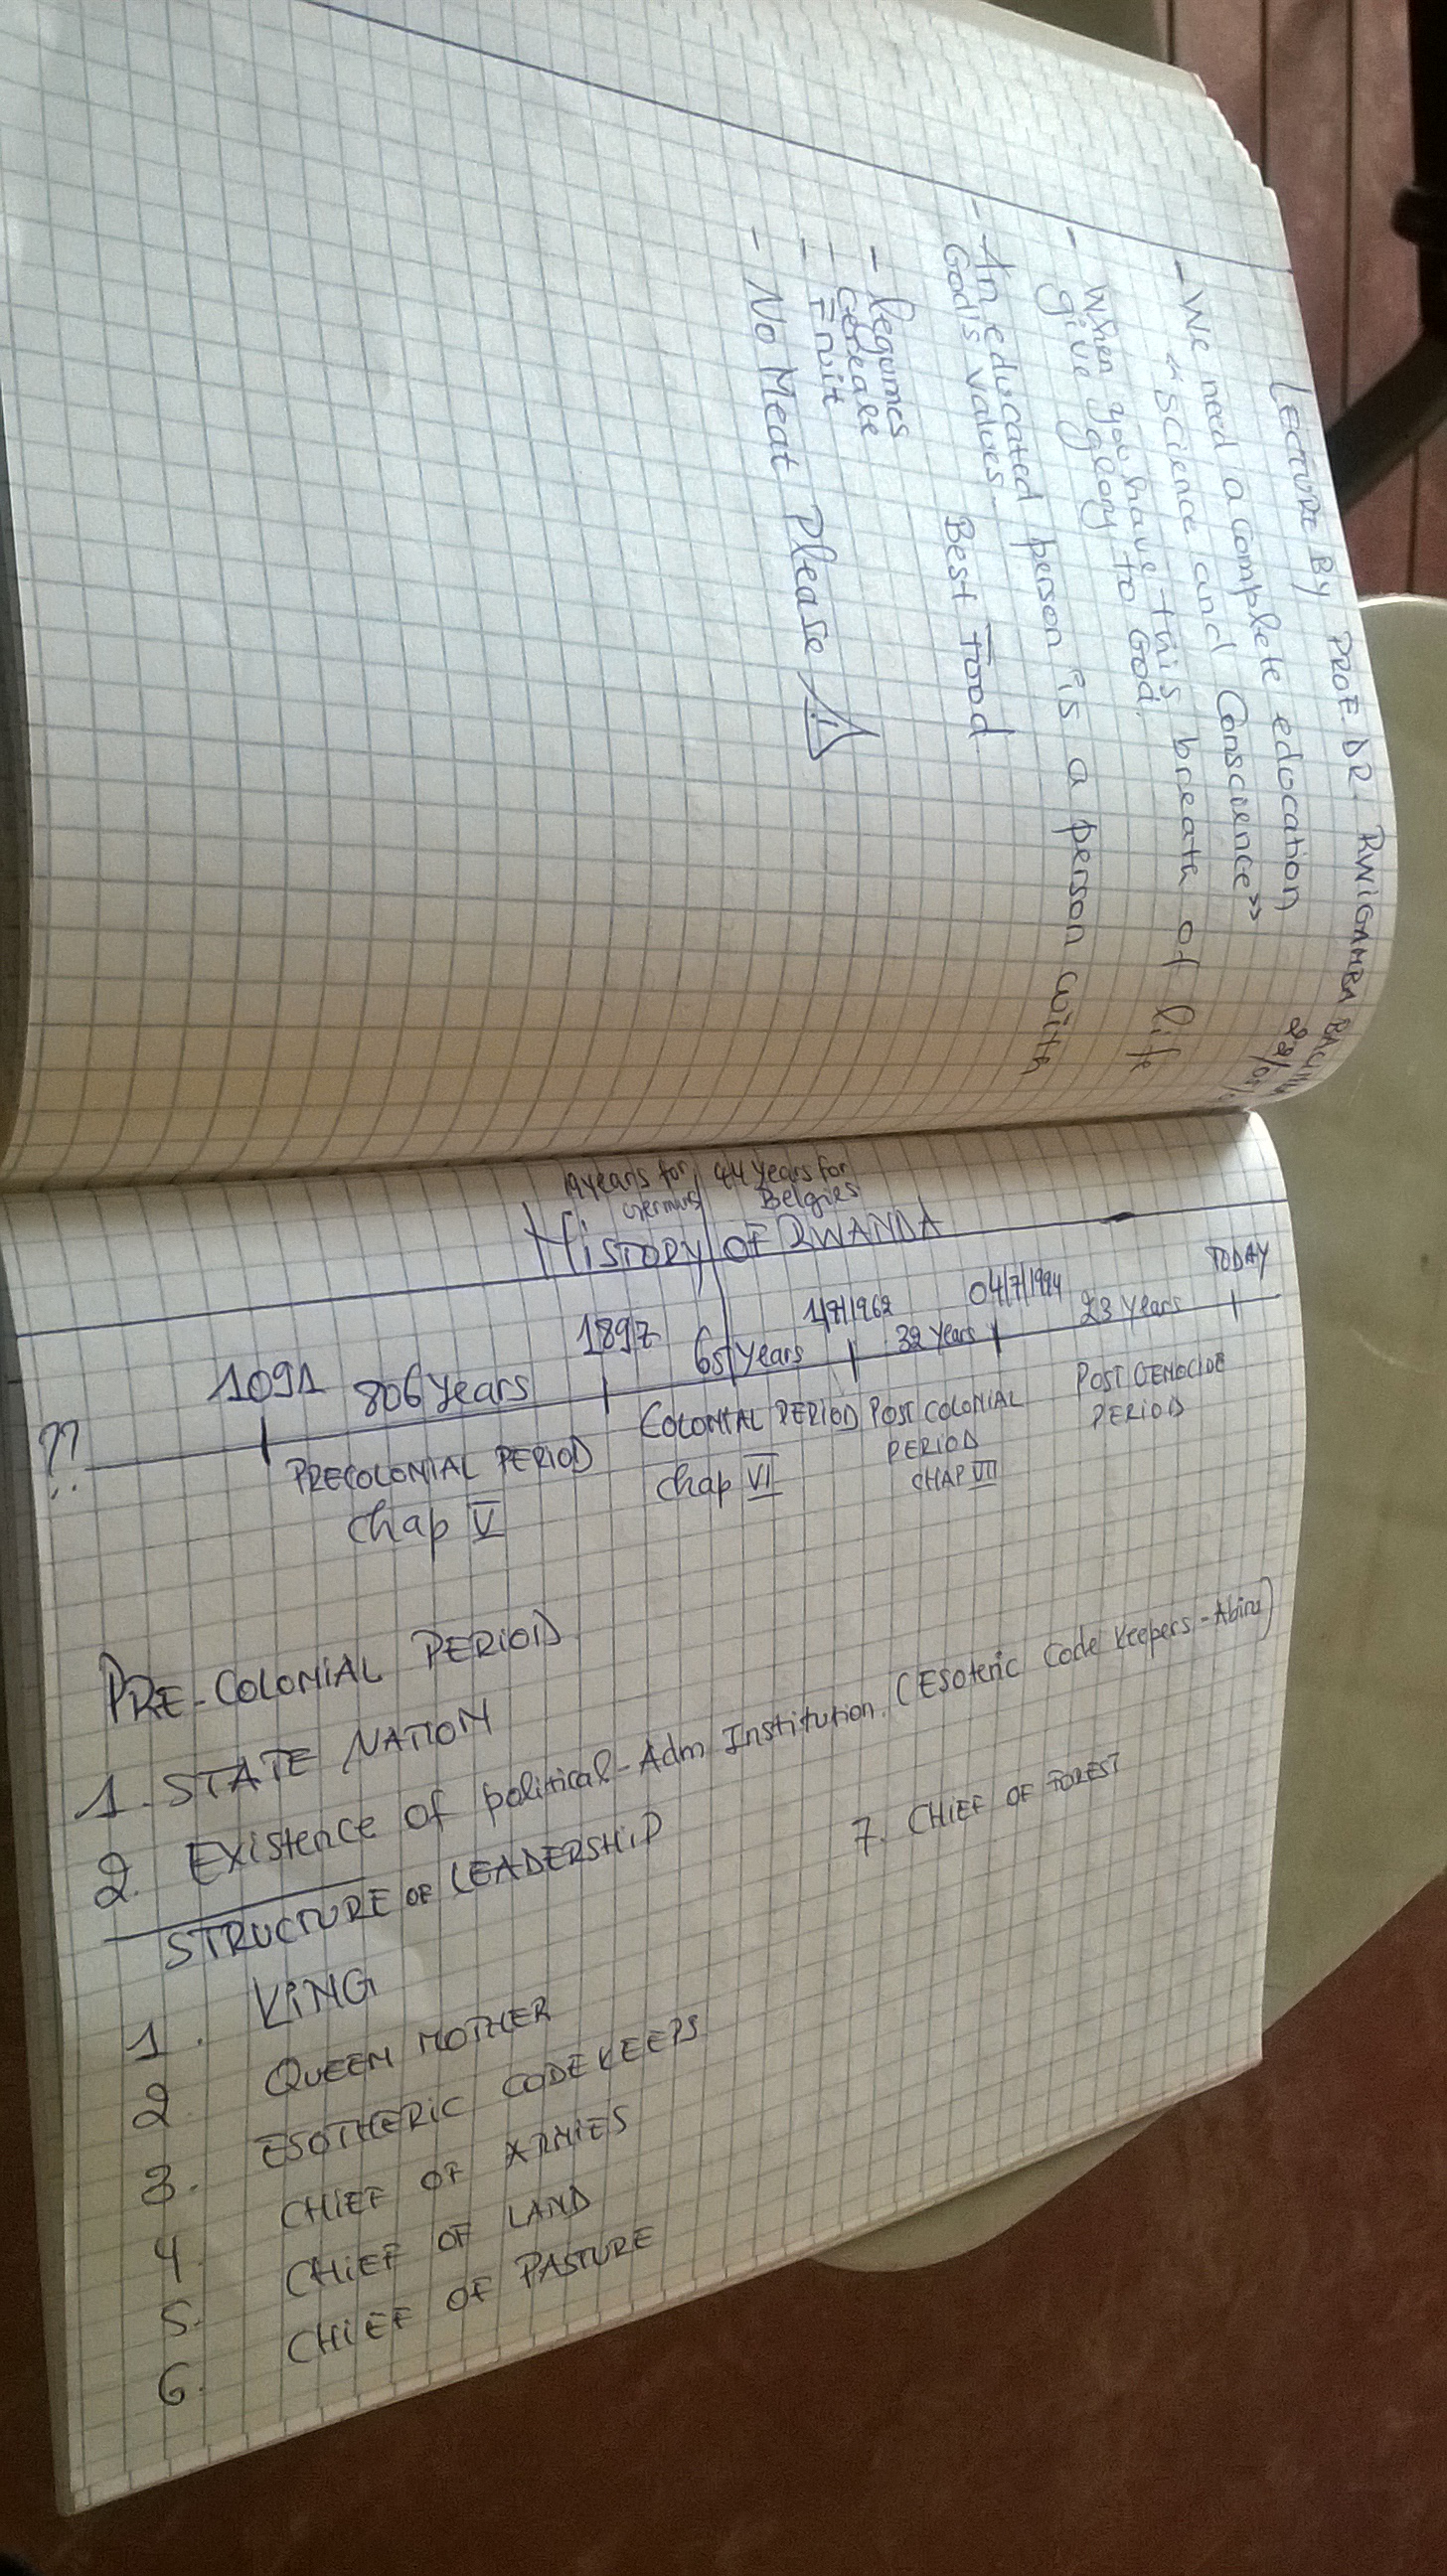 LECTURE BY PROF. DR. RWIGAMBA
22/01/
- We need a complete education
"Science and Conscience"
- When you have this breath of life
give glory to God.
- An educated person is a person with
God's values.
Best Food
- legumes
- cereale
- Fruit
- No Meat Please
19 years for 44 years for
Germans Belgies
HISTORY OF RWANDA
?? 1091 806 years 1897 65 years 1/7/1962 32 years 04/7/1994 23 years TODAY
PRECOLONIAL PERIOD COLONIAL PERIOD POST COLONIAL PERIOD POST GENOCIDE PERIOD
Chap V Chap VI CHAP VII
PRE-COLONIAL PERIOD
1. STATE NATION
2. Existence of political-Adm Institution. (Esoteric Code Keepers - Abiru)
STRUCTURE OF LEADERSHIP
1. KING
2. QUEEN MOTHER
3. ESOTHERIC CODE KEEPS
4. CHIEF OF ARMIES
5. CHIEF OF LAND
6. CHIEF OF PASTURE
7. CHIEF OF FOREST